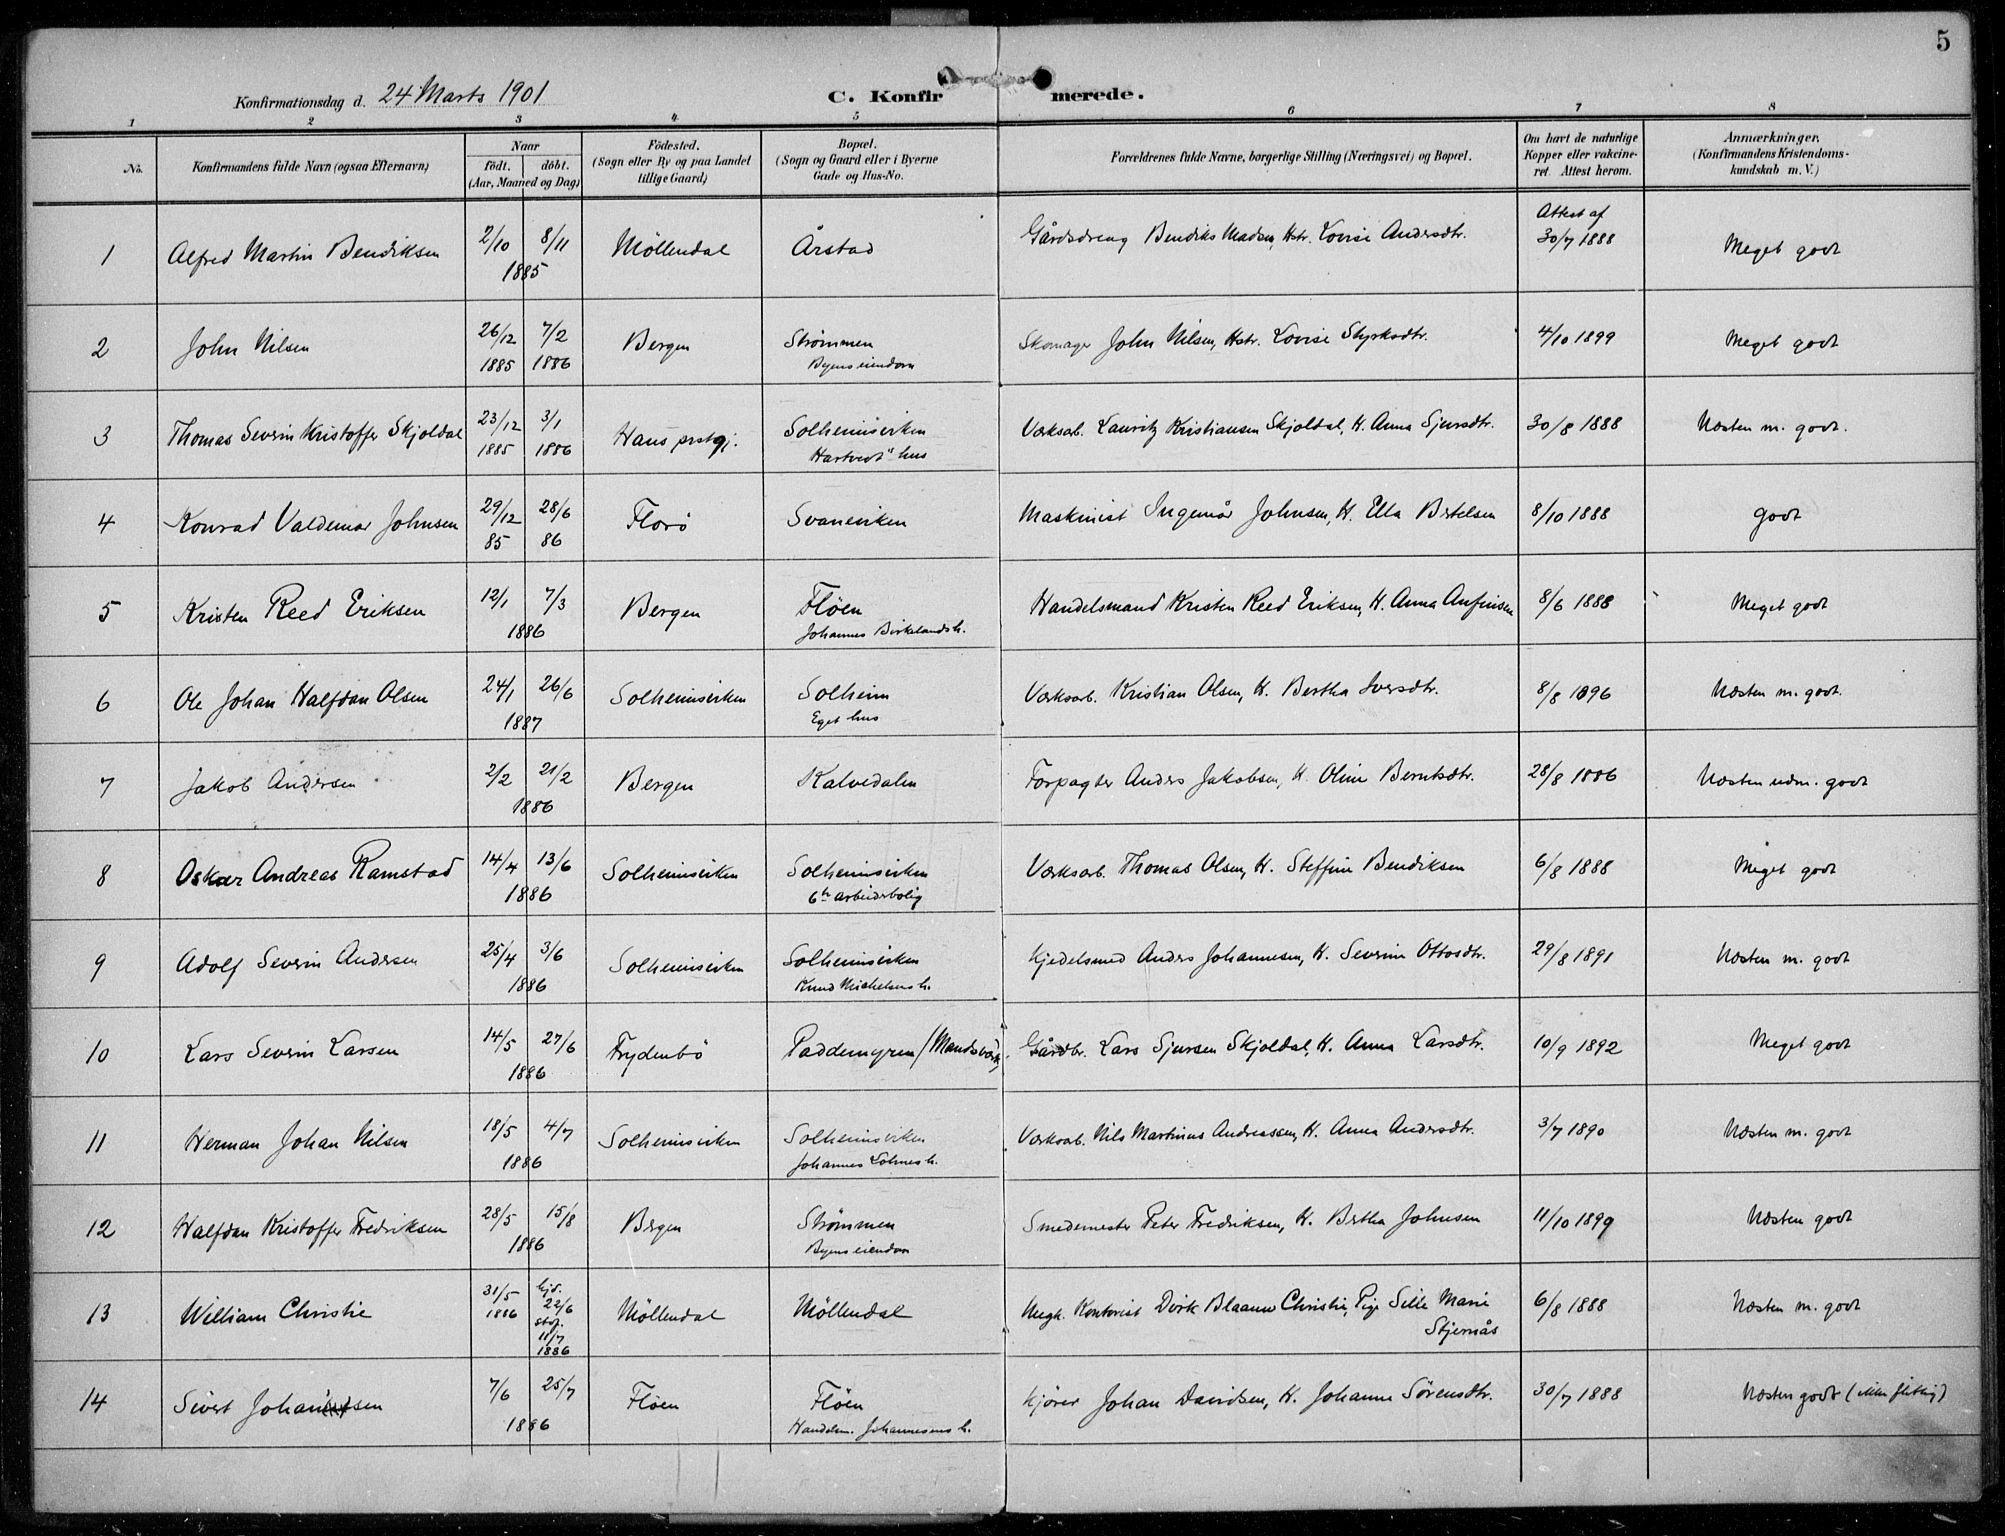 5
Konfirmationsdag d. 24 Marts 1901
C. Konfirmerede.
1 2 3 4 5 6 7 8
No. Konfirmandens fulde Navn (ogsaa Efternavn) Naar født. døbt. (Aar, Maaned og Dag) Fødested. (Sogn eller By og paa Landet tillige Gaard) Bopæl. (Sogn og Gaard eller i Byerne Gade og Hus-No. Forældrenes fulde Navne, borgerlige Stilling (Næringsvei) og Bopæl. Om havt de naturlige Kopper eller vakcineret. Attest herom. Anmærkninger. (Konfirmandens Kristendomskundskab m. V.)
1 Alfred Martin Bendiksen 2/10 8/11 1885 Möllendal Årstad Gårdsdreng Bendiks Madsen, Hstr. Lovise Andersdtr. Attest af 30/7 1888 Meget godt
2 John Nilsen 26/12 1885 7/2 1886 Bergen Strømmen Byens eiendom Skomager John Nilsen, Hstr. Lovise Styrksdtr. 4/10 1899 Meget godt
3 Thomas Severin Kristoffer Skjoldal 23/12 1885 3/1 1886 Haus prstgj. Solheimsviken Hartvedt" hus Værksarb. Lauritz Kristiansen Skjoldal, H. Anna Sjursdtr. 30/8 1888 Næsten m. godt.
4 Konrad Valdemar Johnsen 29/12 85 28/6 86 Florö Svaneviken Maskinist Ingemår Johnsen, H. Ella Bertelsen 8/10 1888 godt
5 Kristen Reed Eriksen 12/1 7/3 1886 Bergen Flöen Johannes Birkelandsh. Handelsmand Kristen Reed Eriksen, H. Anna Anfinsen 8/6 1888 Meget godt
6 Ole Johan Halfdan Olsen 24/1 26/6 1887 Solheimsviken Solheim Eget hus Værksarb. Kristian Olsen, H. Bertha Iversdtr. 8/8 1896 Næsten m. godt.
7 Jakob Andersen 2/2 21/2 1886 Bergen Kalvedalen Forpagter Anders Jakobsen, H. Oline Berntsdtr. 28/8 1886 Næsten udm. godt
8 Oskar Andreas Ramstad 14/4 13/6 1886 Solheimsviken Solheimsviken 6te arbeiderbolig Værksarb. Thomas Olsen, H. Steffine Bendiksen 6/8 1888 Meget godt
9 Adolf Severin Andersen 25/4 3/6 1886 Solheimsviken Solheimsviken Knud Michelsens h. Kjedelsmed Anders Johannesen, H. Severine Ottosdtr. 29/8 1891 Næsten m. godt
10 Lars Severin Larsen 14/5 27/6 1886 Frydenbö Paddemyren / Mandsværk Gårdbr. Lars Sjursen Skjoldal, H. Anna Larsdtr. 10/9 1892 Meget godt
11 Herman Johan Nilsen 18/5 4/7 1886 Solheimsviken Solheimsviken Johannes Lohnes h. Værksarb. Nils Martinus Andreassen, H. Anna Andersdtr. 3/7 1890 Næsten m. godt
12 Halfdan Kristoffer Fredriksen 28/5 15/8 1886 Bergen Strømmen Byens eiendom Smedemester Peter Fredriksen, H. Bertha Johnsen 11/10 1899 Næsten godt
13 William Christie 31/5 1886 hjd. 22/6 stdf. 11/7 1886 Möllendal Möllendal Ungk. Kontorist Dirk Blaauw Christie, Pige Sille Marie Stjernås 6/8 1888 Næsten m. godt
14 Sivert Johansen 7/6 25/7 1886 Flöen Flöen Handelsm. Johannesens h. Kjörer Johan Davidsen, H. Johanne Sörensdtr. 30/7 1888 Næsten godt (ikke flittig)